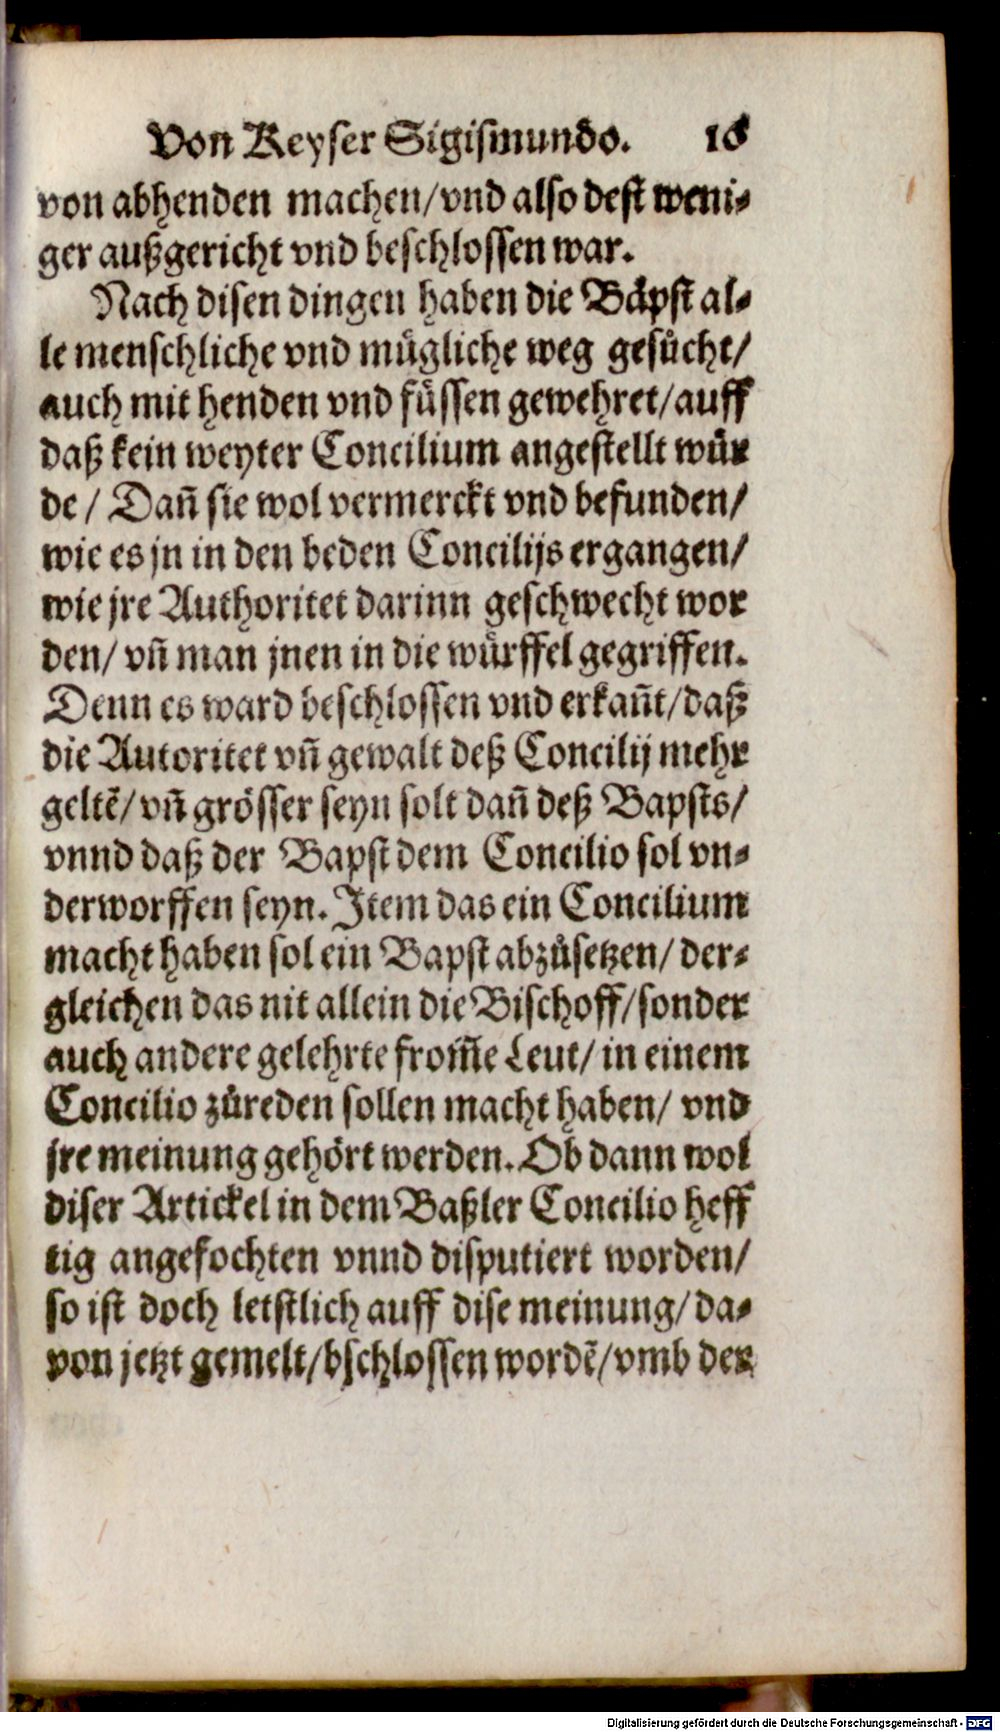 Von Keyser Sigismundo. 16
von abhenden machen/vnd also dest weni-
ger außgericht vnd beschlossen war.
Nach disen dingen haben die Bäpst al-
le menschliche vnd mügliche weg gesůcht/
auch mit henden vnd füssen gewehret/auff
daß kein weyter Concilium angestellt wür
de/ Dañ sie wol vermerckt vnd befunden/
wie es jn in den beden Concilijs ergangen/
wie jre Authoritet darinn geschwecht wor
den/ vñ man jnen in die würffel gegriffen.
Denn es ward beschlossen vnd erkañt/daß
die Autoritet vñ gewalt deß Concilij mehr
geltẽ/ vñ grösser seyn solt dañ deß Bapsts/
vnnd daß der Bapst dem Concilio sol vn-
derworffen seyn. Item das ein Concilium
macht haben sol ein Bapst abzůsetzen/ der-
gleichen das nit allein die Bischoff/sonder
auch andere gelehrte from̃e Leut/ in einem
Concilio zůreden sollen macht haben/ vnd
jre meinung gehört werden. Ob dann wol
diser Artickel in dem Baßler Concilio heff
tig angefochten vnnd disputiert worden/
so ist doch letstlich auff dise meinung/ da-
von jetzt gemelt/bschlossen wordẽ/vmb der
Digitalisierung gefördert durch die Deutsche Forschungsgemeinschaft - DFG